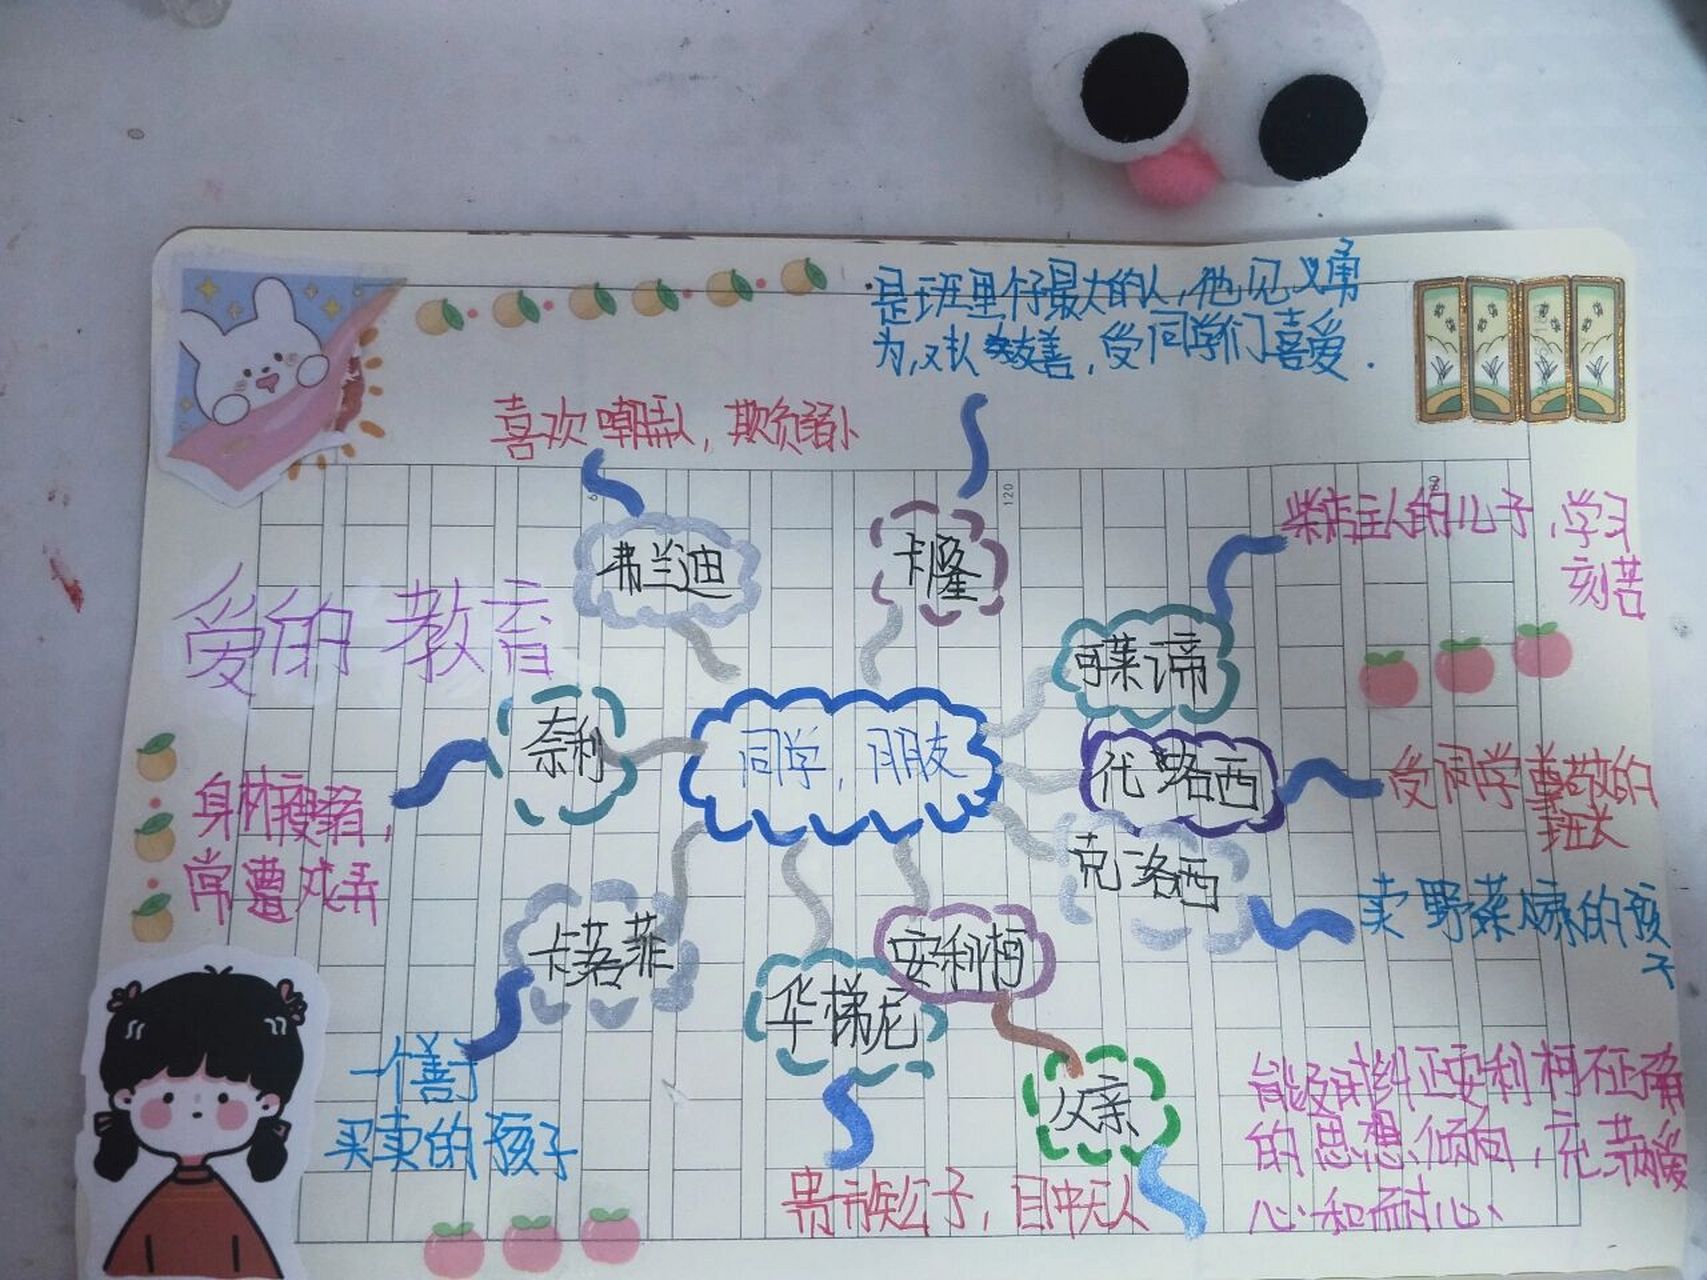 是班里年最大的人，他见义勇
为，对人友善，受同学们喜爱．
喜欢嘲弄人，欺负弱小
弗兰迪
卡隆
120
柴店主人的儿子，学习
刻苦
爱的教育
可莱谛
奈利
同学，朋友
代洛西
受同学尊敬的
班长
身材瘦弱，
常遭戏弄
克洛西
卖野菜嫁的孩
子
卡洛菲
安利柯
华梯尼
一个善于
买卖的孩子
父亲
能及时纠正安利柯不正确
的思想倾向，充满爱
心和耐心、
贵族公子，目中无人